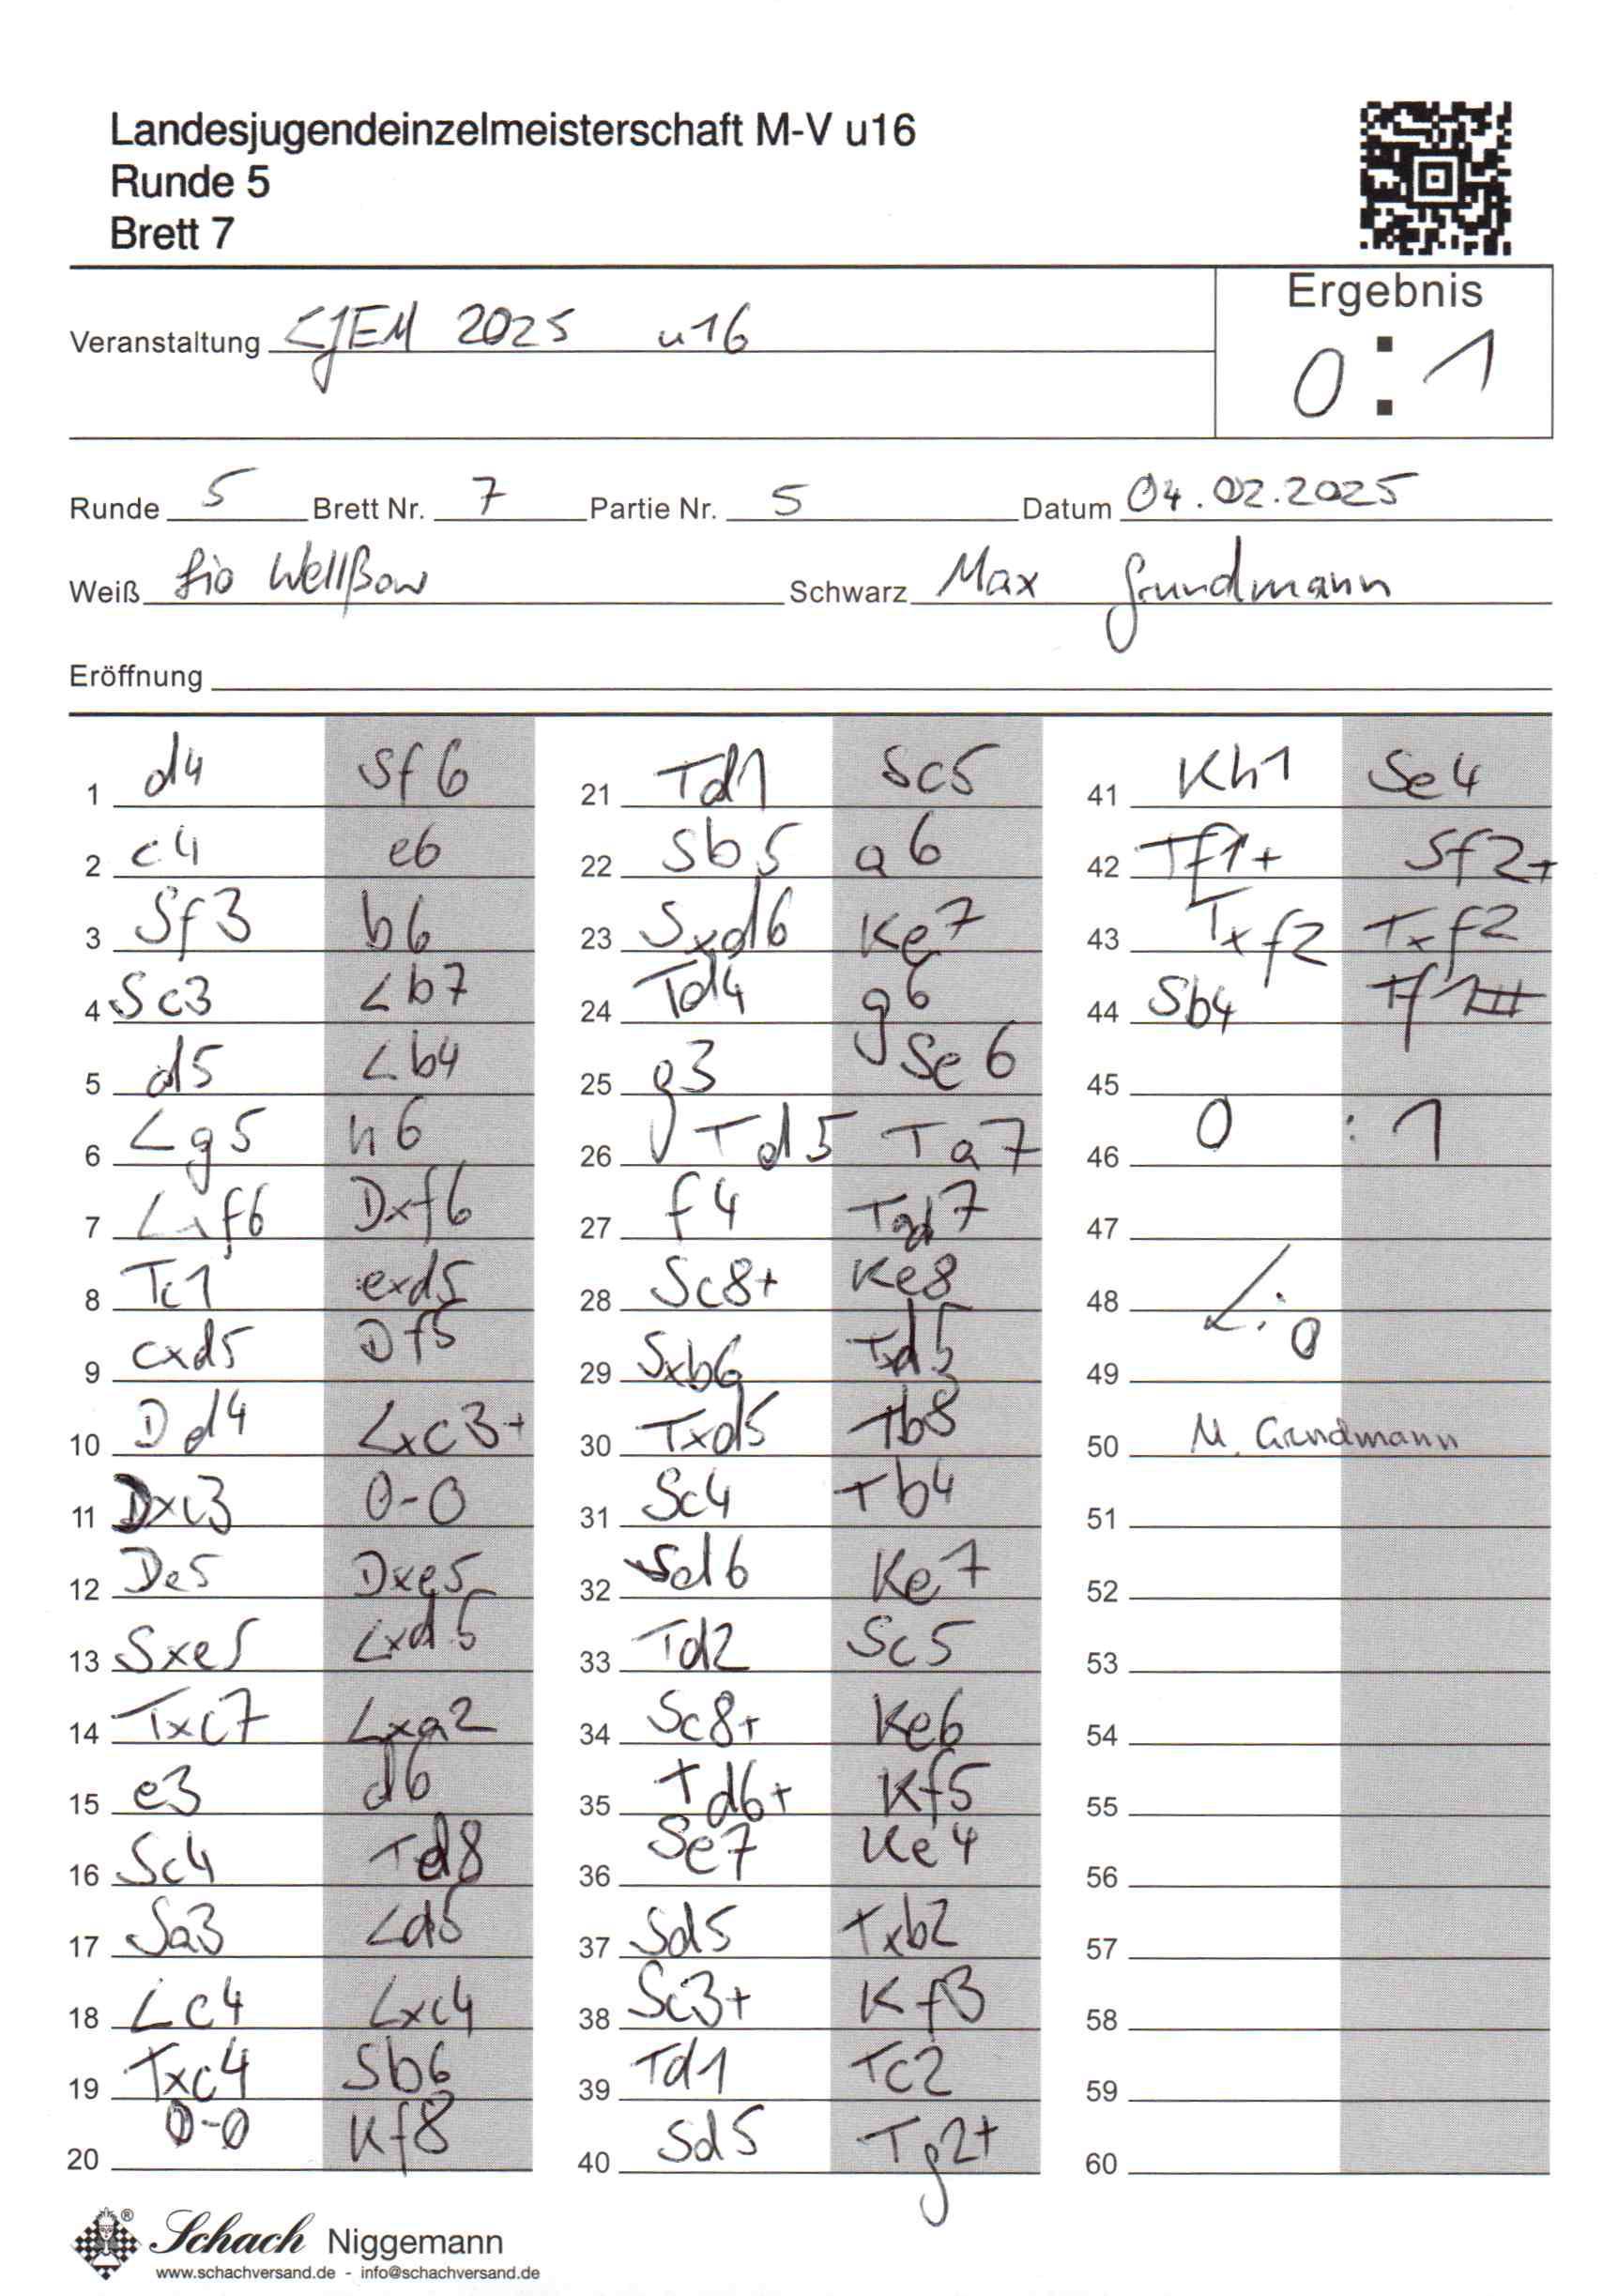 Landesjugendeinzelmeisterschaft M-V u16
Runde 5
Brett 7
Ergebnis
Veranstaltung LJEM 2025 u16
0 : 1
Runde 5 Brett Nr. 7 Partie Nr. 5 Datum 04.02.2025
Weiß Lio Wellßow Schwarz Max Grundmann
Eröffnung
1 d4 Sf6
2 c4 e6
3 Sf3 b6
4 Sc3 Lb7
5 d5 Lb4
6 Lg5 h6
7 Lxf6 Dxf6
8 Tc1 exd5
9 cxd5 Df5
10 Dd4 Lxc3+
11 Dxc3 0-0
12 De5 Dxe5
13 Sxe5 Lxd5
14 Txc7 Lxa2
15 e3 d6
16 Sc4 Td8
17 Sa3 Ld5
18 Lc4 Lxc4
19 Txc4 Sb6
20 0-0 Kf8
21 Td1 Sc5
22 Sb5 a6
23 Sxd6 Ke7
24 Td4 g6
25 g3 Se6
26 Td5 Ta7
27 f4 Tad7
28 Sc8+ Ke8
29 Sxb6 Txd5
30 Txd5 Tb8
31 Sc4 Tb4
32 Sd6 Ke7
33 Td2 Sc5
34 Sc8+ Ke6
35 Td6+ Kf5
36 Se7 Ke4
37 Sd5 Txb2
38 Sc3+ Kf3
39 Td1 Tc2
40 Sd5 Tg2+
41 Kh1 Se4
42 Tf1+ Sf2+
43 Txf2 Txf2
44 Sb4 Tf1#
45
46 0 : 1
47
48 Lio
49
50 M. Grundmann
51
52
53
54
55
56
57
58
59
60
Schach Niggemann
www.schachversand.de - info@schachversand.de